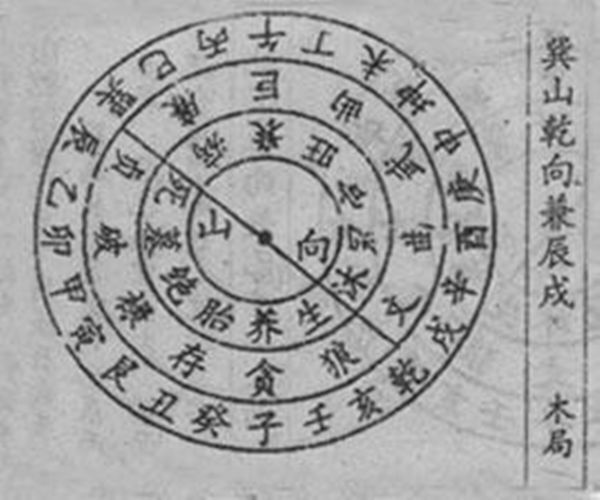 巽山乾向兼辰戌
木局
午丁未坤申庚酉辛戌乾亥壬子癸丑艮寅甲卯乙辰巽巳丙
巨曲武曲文狼贪存禄破贞廉
衰旺官冠沐生养胎绝墓死病
山向